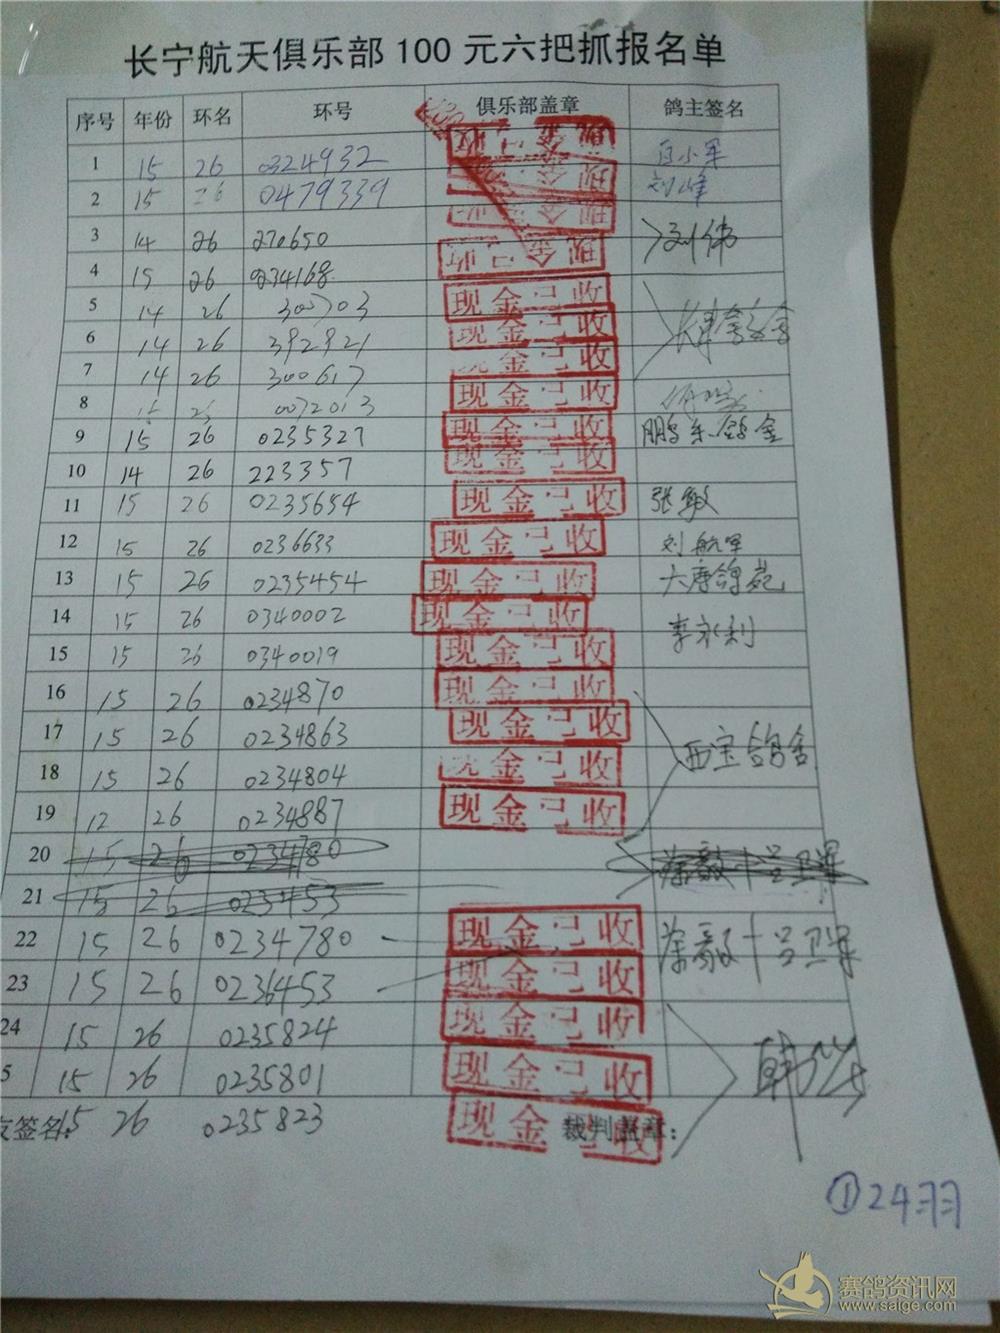 长宁航天俱乐部100元六把抓报名单
序号 年份 环名 环号 俱乐部盖章 鸽主签名
1 15 26 0324932 现金已收 白小军
2 15 26 0479339 刘峰
3 14 26 270650 刘伟
4 15 26 0234168 现金已收
5 14 26 300703 现金已收
6 14 26 392921 现金已收
7 14 26 300617 现金已收
8 0072013 现金已收
9 15 26 0235327 现金已收
10 14 26 223357 现金已收
11 15 26 0235654 现金已收 张敏
12 15 26 0236633 现金已收 刘航军
13 15 26 0235454 现金已收 大唐鸽苑
14 15 26 0340002 现金已收 李永利
15 15 26 0340019 现金已收
16 15 26 0234870 现金已收
17 15 26 0234863 现金已收 西宝鸽舍
18 15 26 0234804 现金已收
19 12 26 0234887 现金已收
20 15 26 0234780
21 15 26 023453
22 15 26 0234780 现金已收
23 15 26 0236453 现金已收
24 15 26 0235824 现金已收
5 15 26 0235801 现金已收
友签名: 15 26 0235823 现金已收 裁判盖章:
①24羽
赛鸽资讯网
www.saige.com